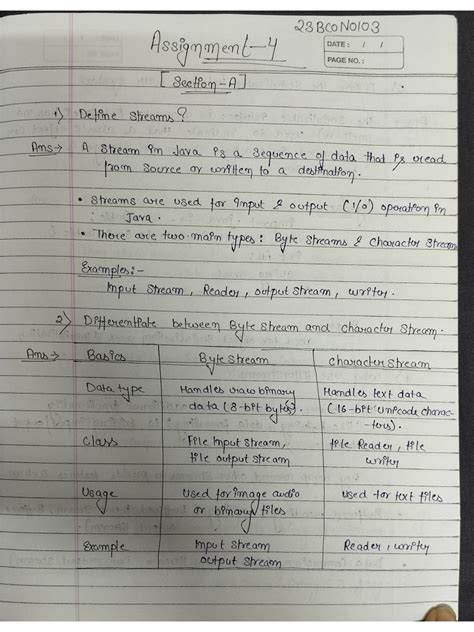 23BCON0103
Assignment-4
DATE: / /
PAGE NO.:
[Section-A]
1) Define Streams?
Ans→ A Stream in Java is a sequence of data that is read
from source or written to a destination.
• Streams are used for input & output (I/O) operation in
Java.
• There are two main types: Byte Streams & Character Stream
Examples:-
Input Stream, Reader, output Stream, writer.
2) Differentiate between Byte Stream and Character Stream.
Ans→ Basics Byte Stream Character Stream
Data type Handles raw binary Handles text data
data (8-bit bytes). (16-bit Unicode charac-
ters).
Class File Input Stream, file Reader, file
file output Stream writer
Usage used for image audio used for text files
or binary files
Example Input Stream Reader, writer
output Stream